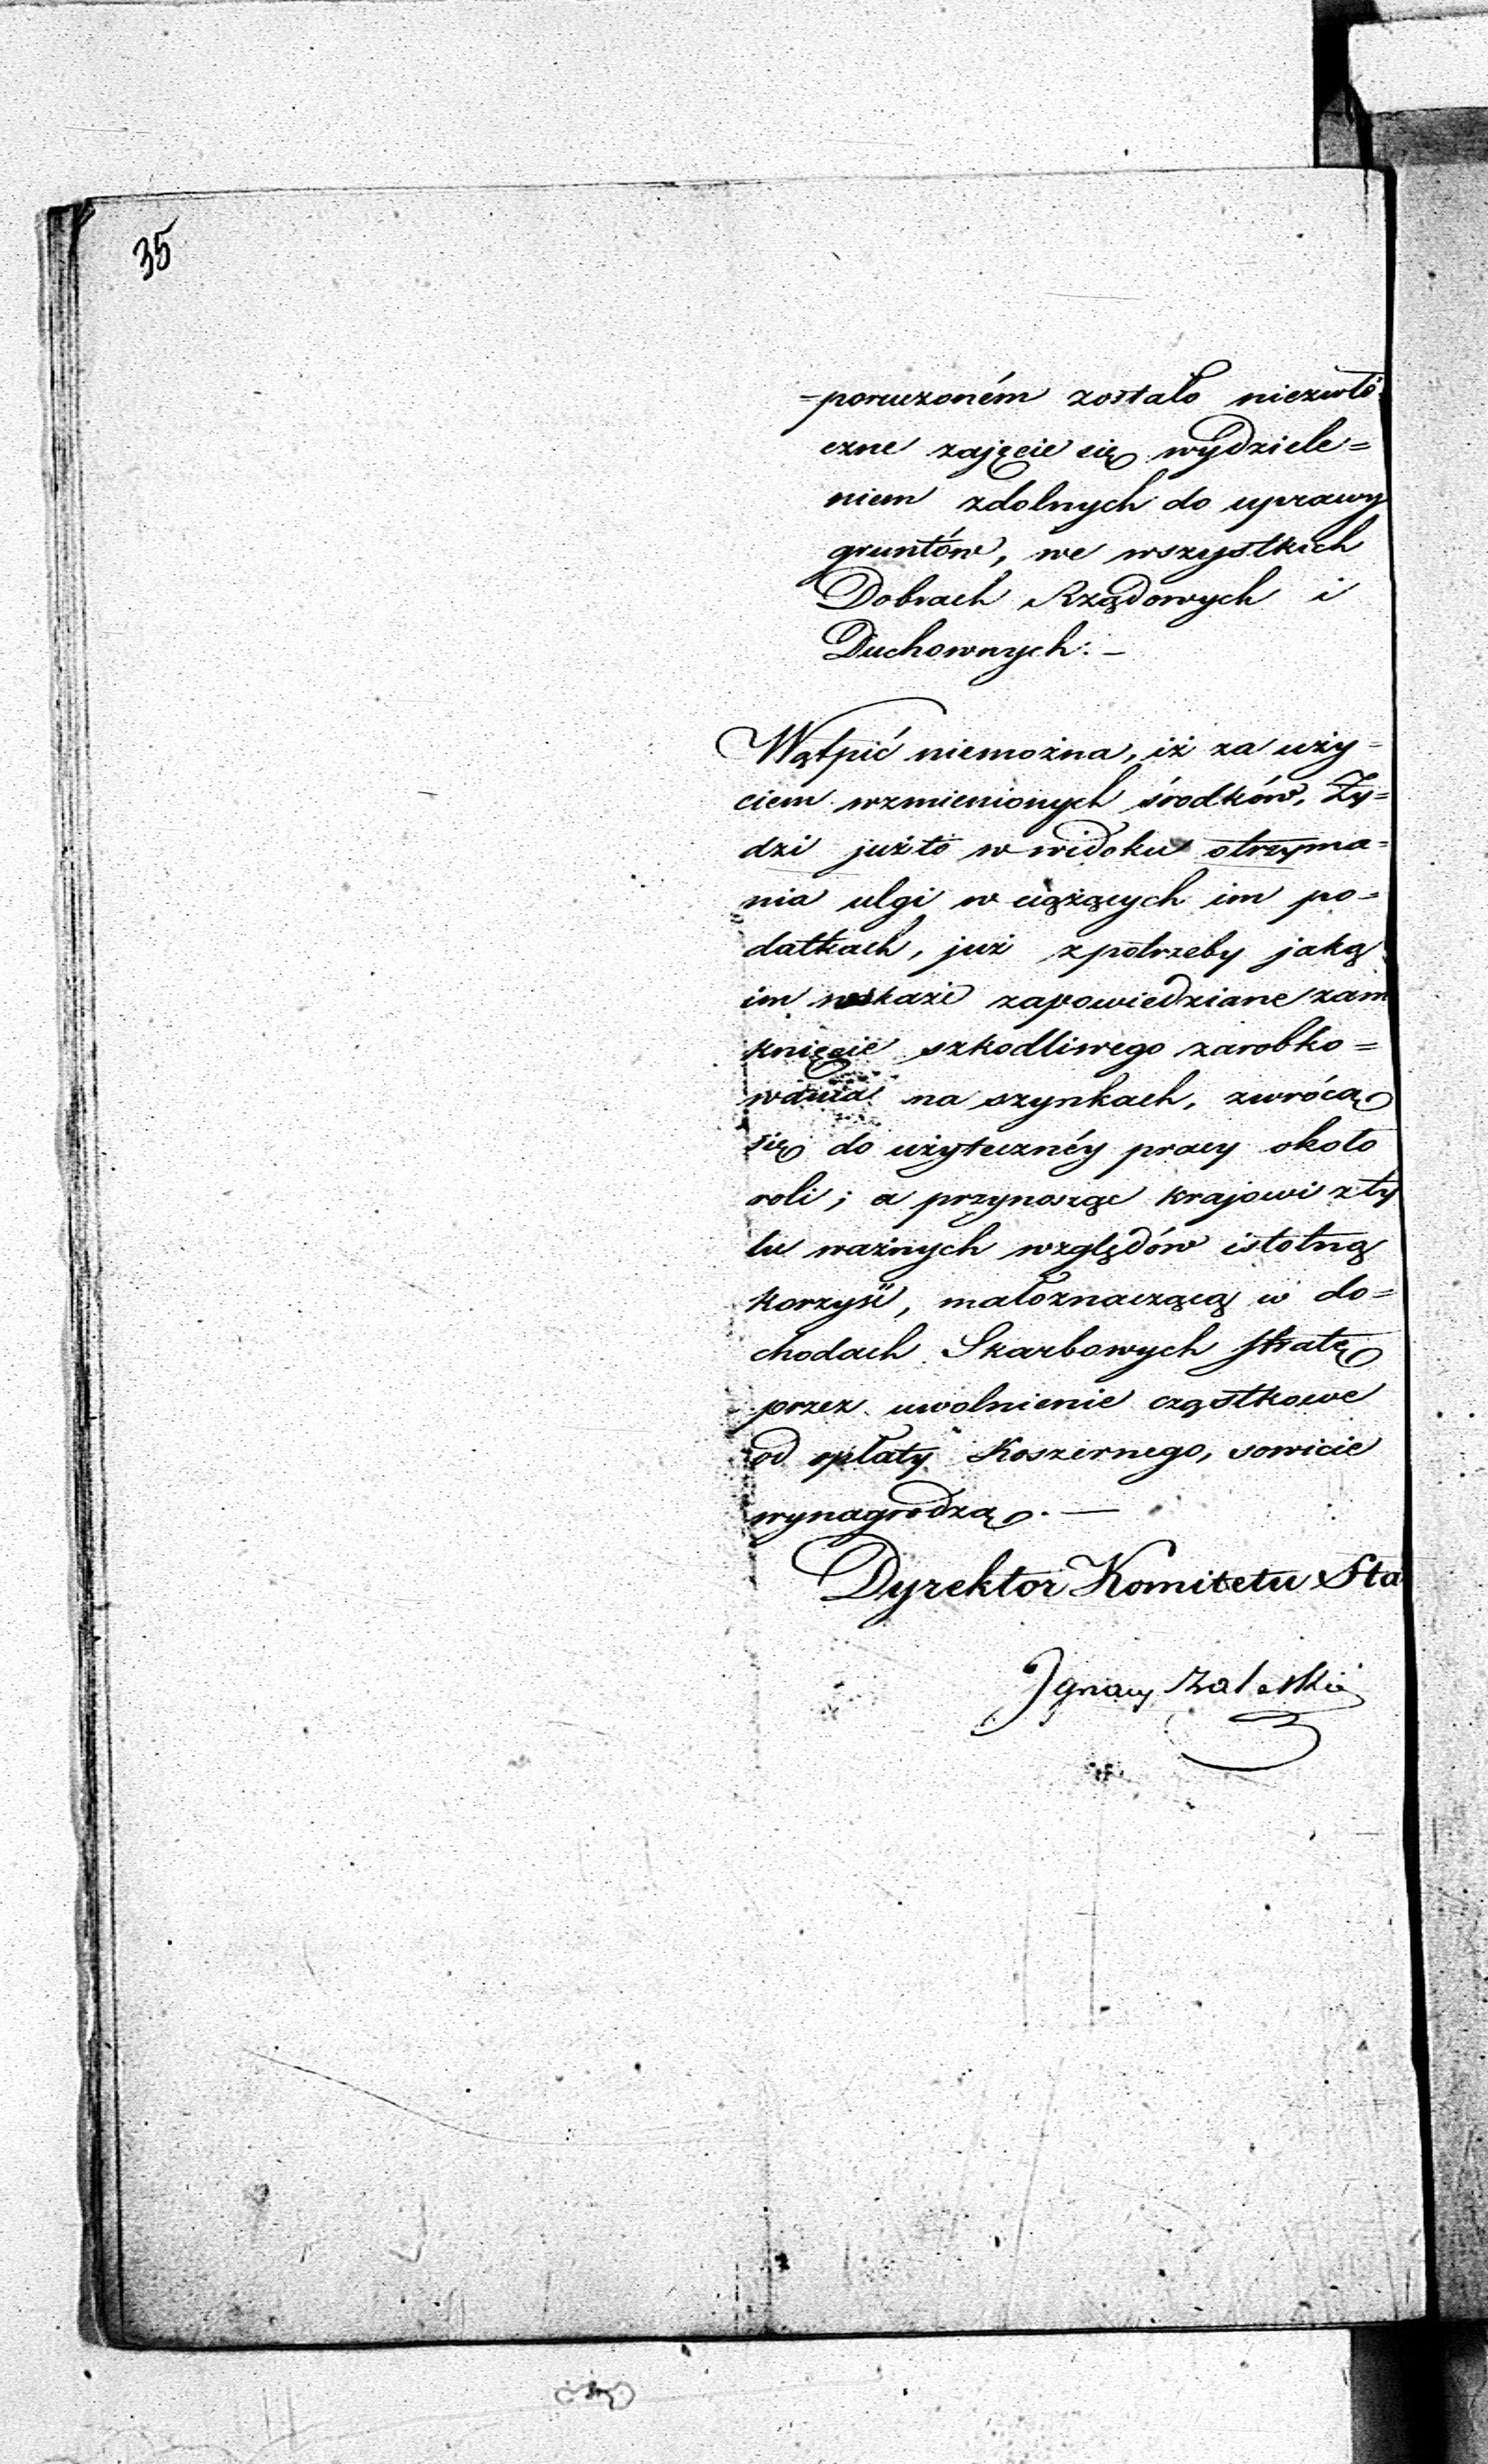 35
-poruczoném zostało niezwłó-
czne zajęcie się wydziele=
niem zdolnych do uprawy
gruntów, we wszystkich
Dobrach Rządowych i
Duchownych. –
Wątpić niemożna, iż za uży=
ciem wzmienionych środków, Ży=
dzi już to w widoku otrzyma=
nia ulgi w ciążących im po=
datkach, już z potrzeby jaką
im wskaże zapowiedziane zam
knięcie szkodliwego zarobko=
wania na szynkach, zwrócą
się do użytecznéy pracy około
roli; a przynosząc krajowi z ty
lu ważnych względów istotną
korzyść, małoznaczącą w do=
chodach Skarbowych stratę
przez uwolnienie cząstkowe
od opłaty Koszernego, sowicie
wynagrodzą. —
Dyrektor Komitetu Sta
Ignacy Zaleski